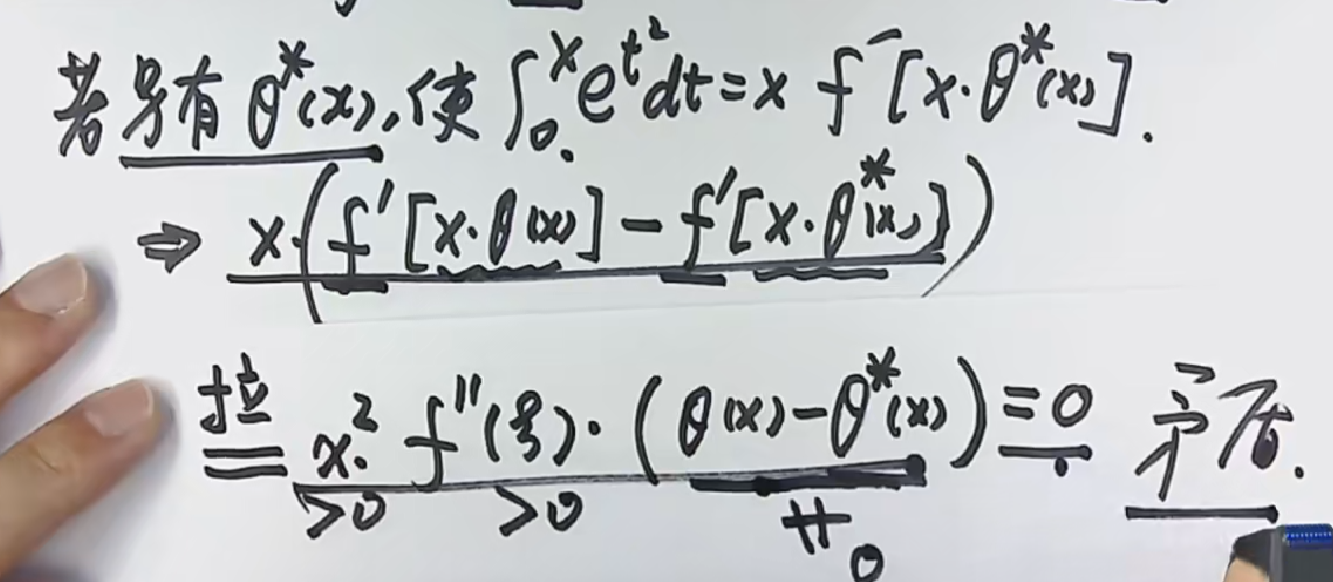 若另有 θ*(x), 使 ∫₀ˣ e^{t²}dt = x f'[x·θ*(x)].
⇒ x·(f'[x·θ(x)] - f'[x·θ*(x)])
拉
= x² f''(ξ)·(θ(x)-θ*(x)) = 0 矛盾.
>0 >0 ≠0